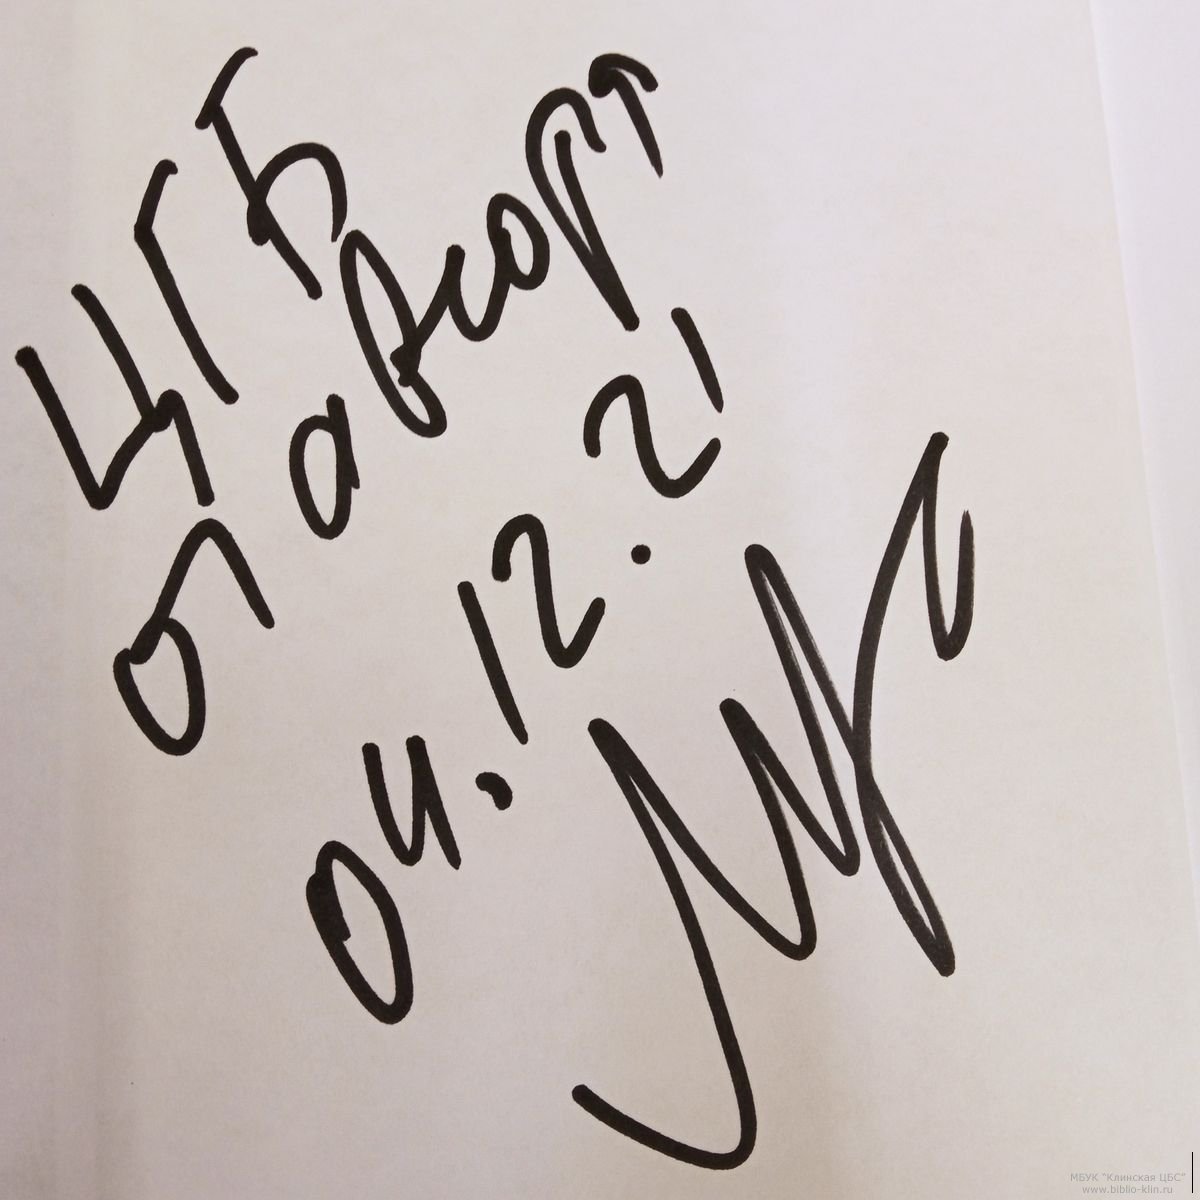 ЦГБ
от автора
04.12.21
МБУК "Клинская ЦБС"
www.biblio-klin.ru